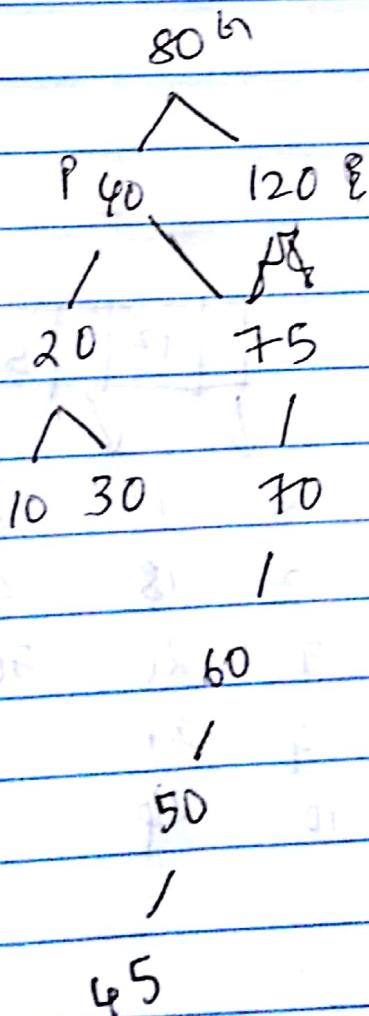 80 G
P 40 120
20 75
10 30 70
60
50
45